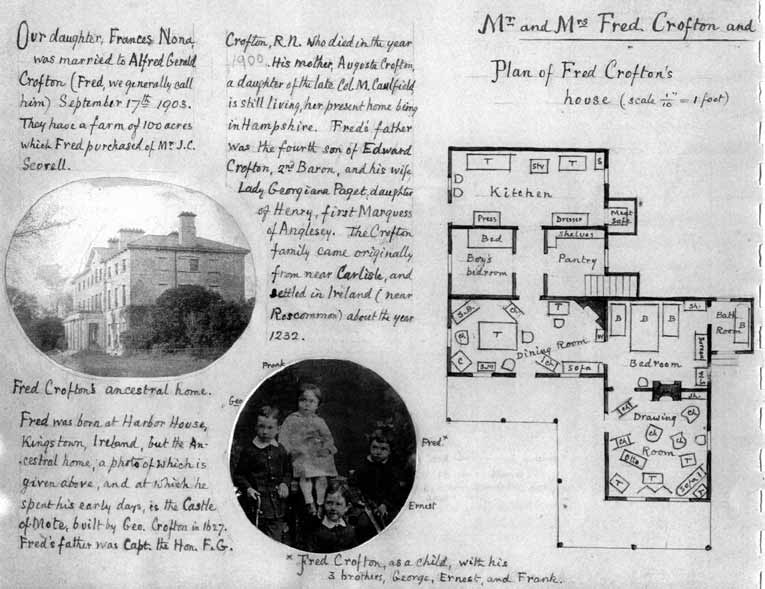 Our daughter, Frances Nona,
was married to Alfred Gerald
Crofton (Fred, we generally call
him) September 17th 1903.
They have a farm of 100 acres
which Fred purchased of Mr J.C.
Scovell.
Fred Crofton's ancestral home.
Fred was born at Harbor House,
Kingstown, Ireland, but the An-
-cestral home, a photo of which is
given above, and at which he
spent his early days, is the Castle
of Mote, built by Geo. Crofton in 1627.
Fred's father was Capt. the Hon. F.G.
Crofton, R.N. who died in the year
1900. His mother, Augusta Crofton,
a daughter of the late Col. M. Caulfield,
is still living, her present home being
in Hampshire. Fred's father
was the fourth son of Edward
Crofton, 2nd Baron, and his wife
Lady Georgiana Paget, daughter
of Henry, first Marquess
of Anglesey. The Crofton
family came originally
from near Carlisle, and
settled in Ireland (near
Roscommon) about the year
1232.
Frank
Geo
Fred*
Ernest
* Fred Crofton, as a child, with his
3 brothers, George, Ernest, and Frank.
Mr and Mrs Fred. Crofton and
Plan of Fred Crofton's
house (scale 1/10" = 1 foot)
T
Stv
T
S
Kitchen
Press
Dresser
Meat
Safe
Bed
Boy's
bedroom
Shelves
Pantry
S.B.
Ch
T
T
Dining Room
C
Ch
Sofa
B
B
B
Sh.
Bath
Room
B
Bedroom
Bureau
W.S.
Sh.
Drawing
Room
Ch
Ch
Ch
Ch
Otto
T
T
T
Sofa
T